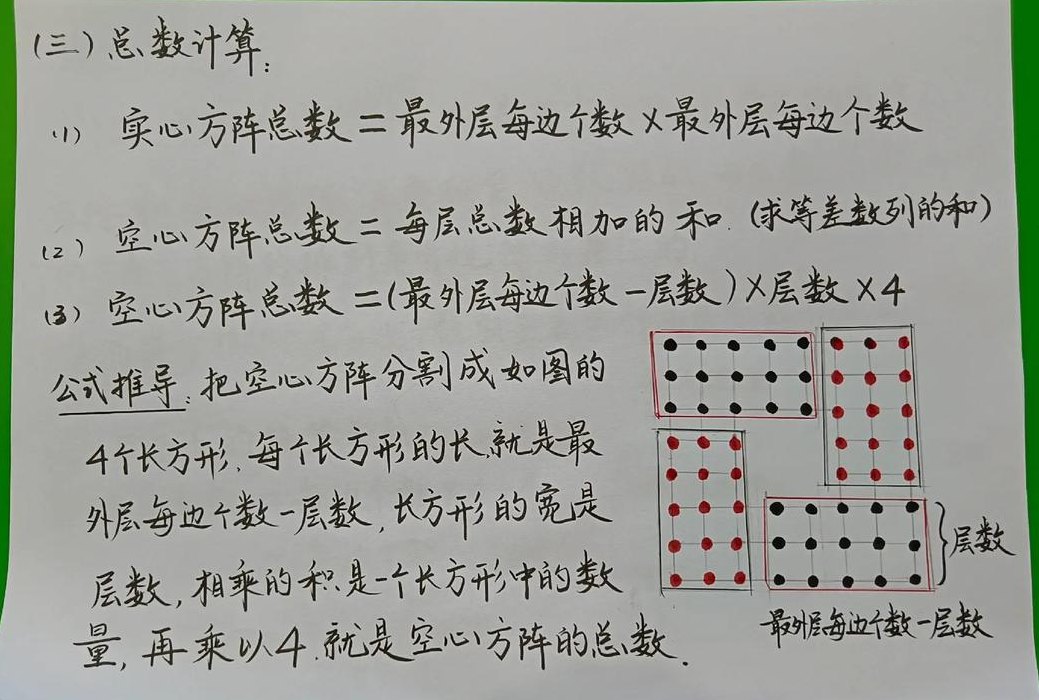 (三)总数计算:
(1) 实心方阵总数=最外层每边个数×最外层每边个数
(2) 空心方阵总数=每层总数相加的和.(求等差数列的和)
(3) 空心方阵总数=(最外层每边个数-层数)×层数×4
公式推导:把空心方阵分割成如图的
4个长方形,每个长方形的长,就是最
外层每边个数-层数,长方形的宽是
层数,相乘的积是一个长方形中的数
量,再乘以4.就是空心方阵的总数.
层数
最外层每边个数-层数